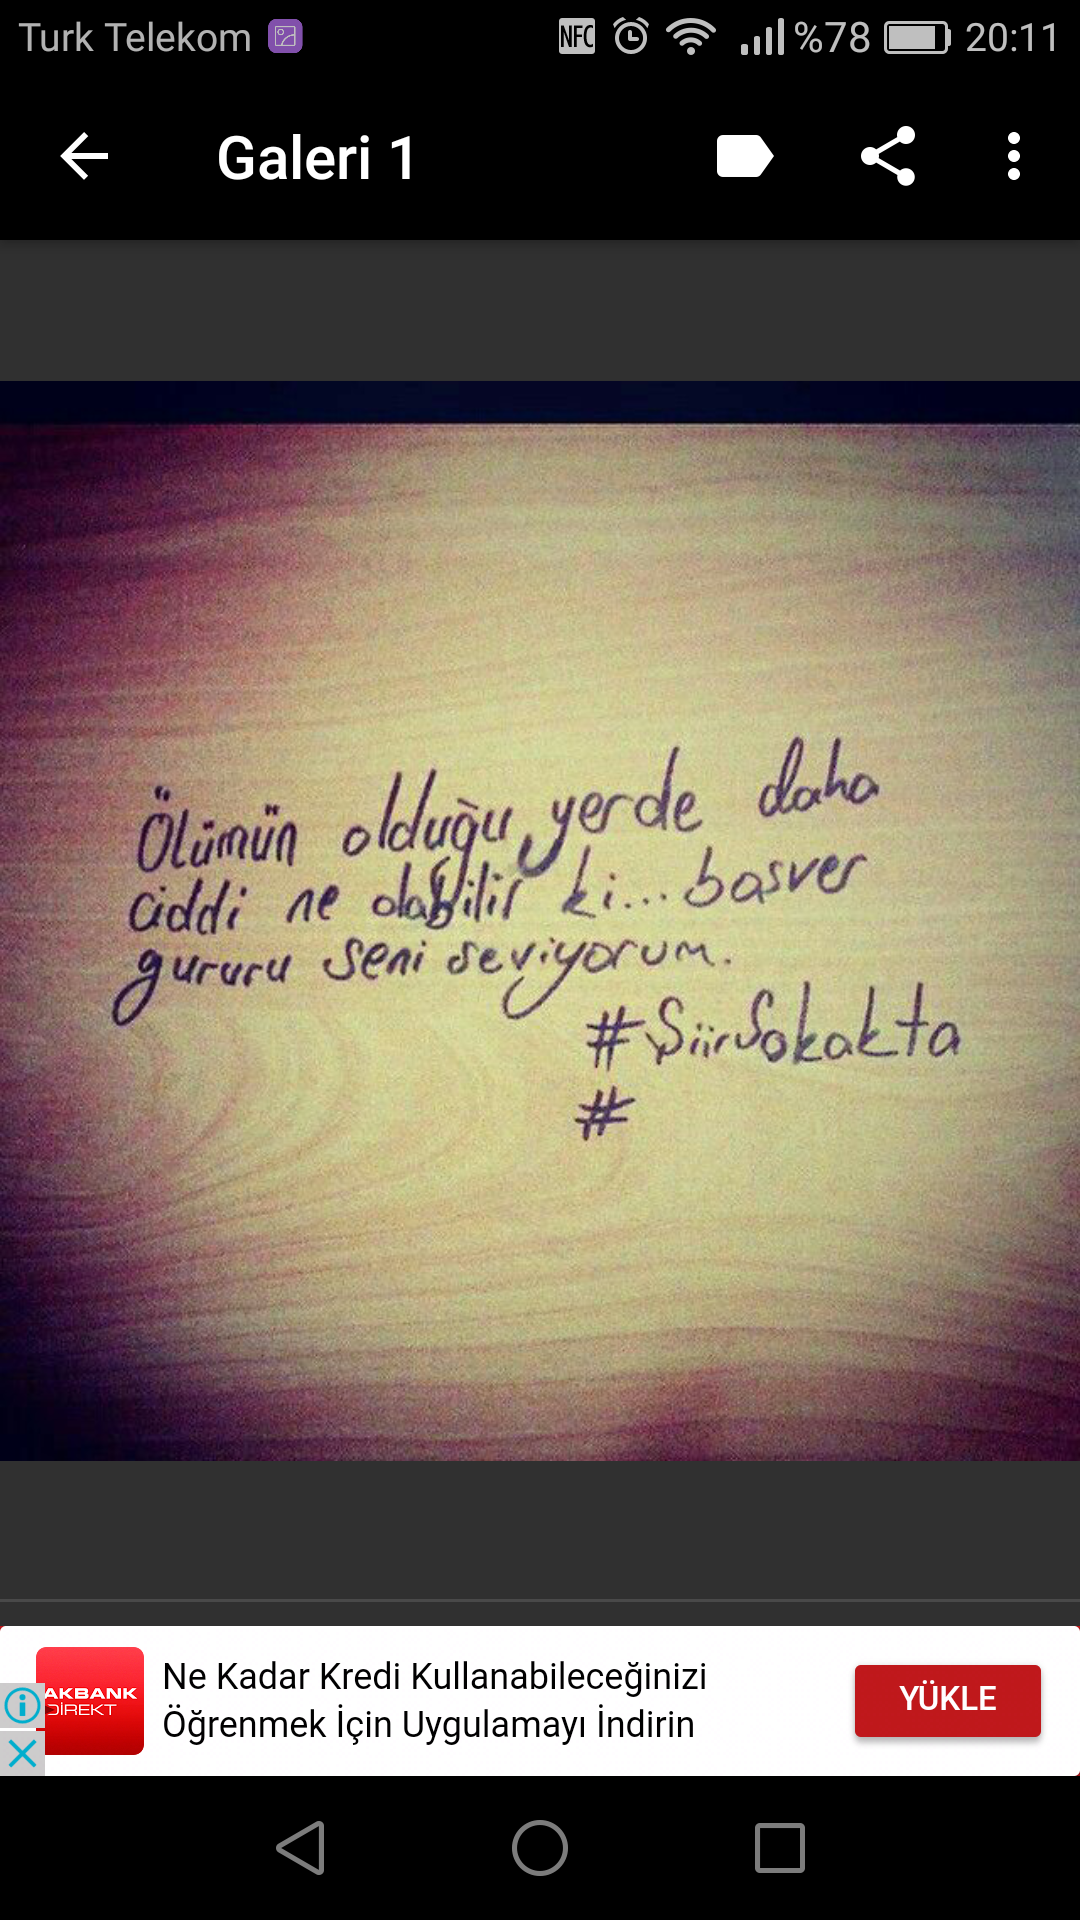 Turk Telekom NFC %78 20:11
Galeri 1
Ölümün olduğu yerde daha
ciddi ne olabilir ki... boşver
gururu seni seviyorum.
#ŞiirSokakta
#
AKBANK
DİREKT
Ne Kadar Kredi Kullanabileceğinizi
Öğrenmek İçin Uygulamayı İndirin
YÜKLE